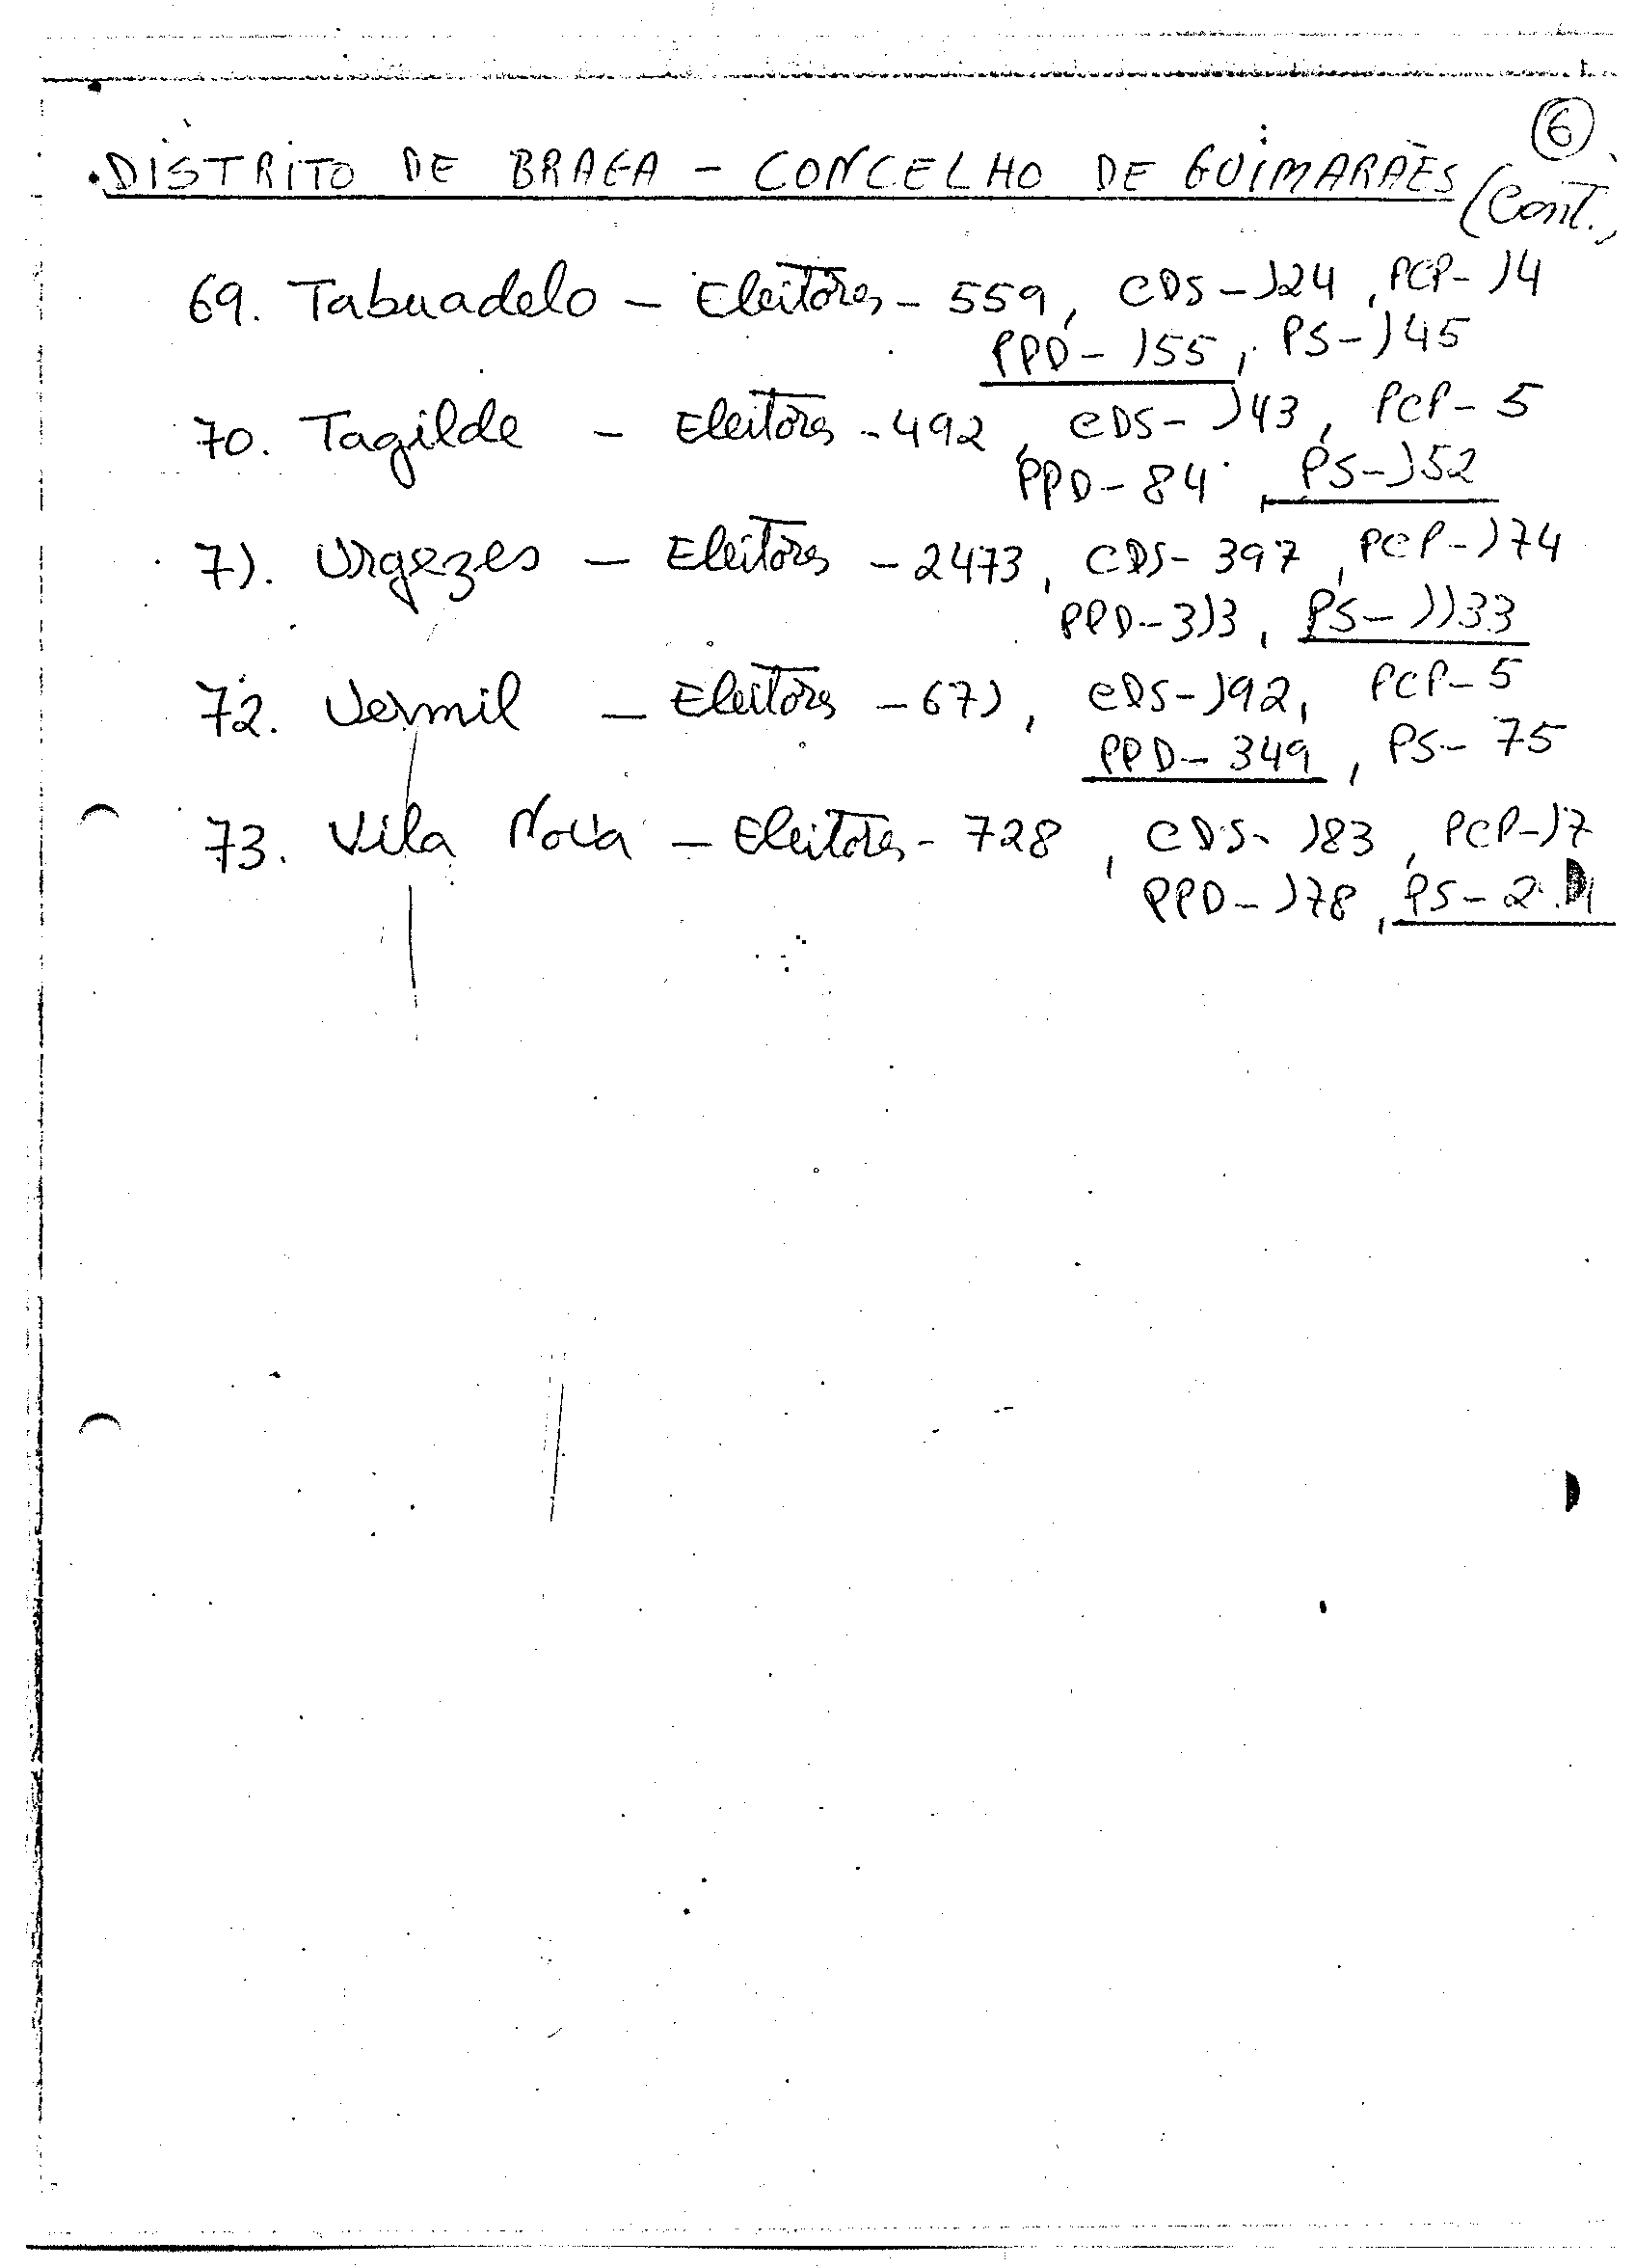 6
DISTRITO DE BRAGA - CONCELHO DE GUIMARÃES (Cont.)
69. Tabuadelo - Eleitores - 559, CDS - 124, PCP - 14
PPD - 155, PS - 145
70. Tagilde - Eleitores - 492, CDS - 143, PCP - 5
PPD - 84, PS - 152
71. Urgezes - Eleitores - 2473, CDS - 397, PCP - 174
PPD - 313, PS - 1133
72. Vermil - Eleitores - 671, CDS - 192, PCP - 5
PPD - 349, PS - 75
73. Vila Nova - Eleitores - 728, CDS - 183, PCP - 17
PPD - 178, PS -